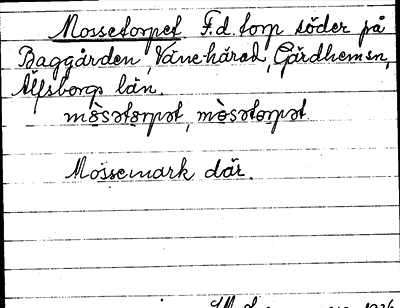 Mossetorpet F.d. torp söder på
Baggården, Väne härad, Gärdhemsn,
Älfsborgs län.
mòsətɔrpət, mòsətɔrpət
Mossemark där.